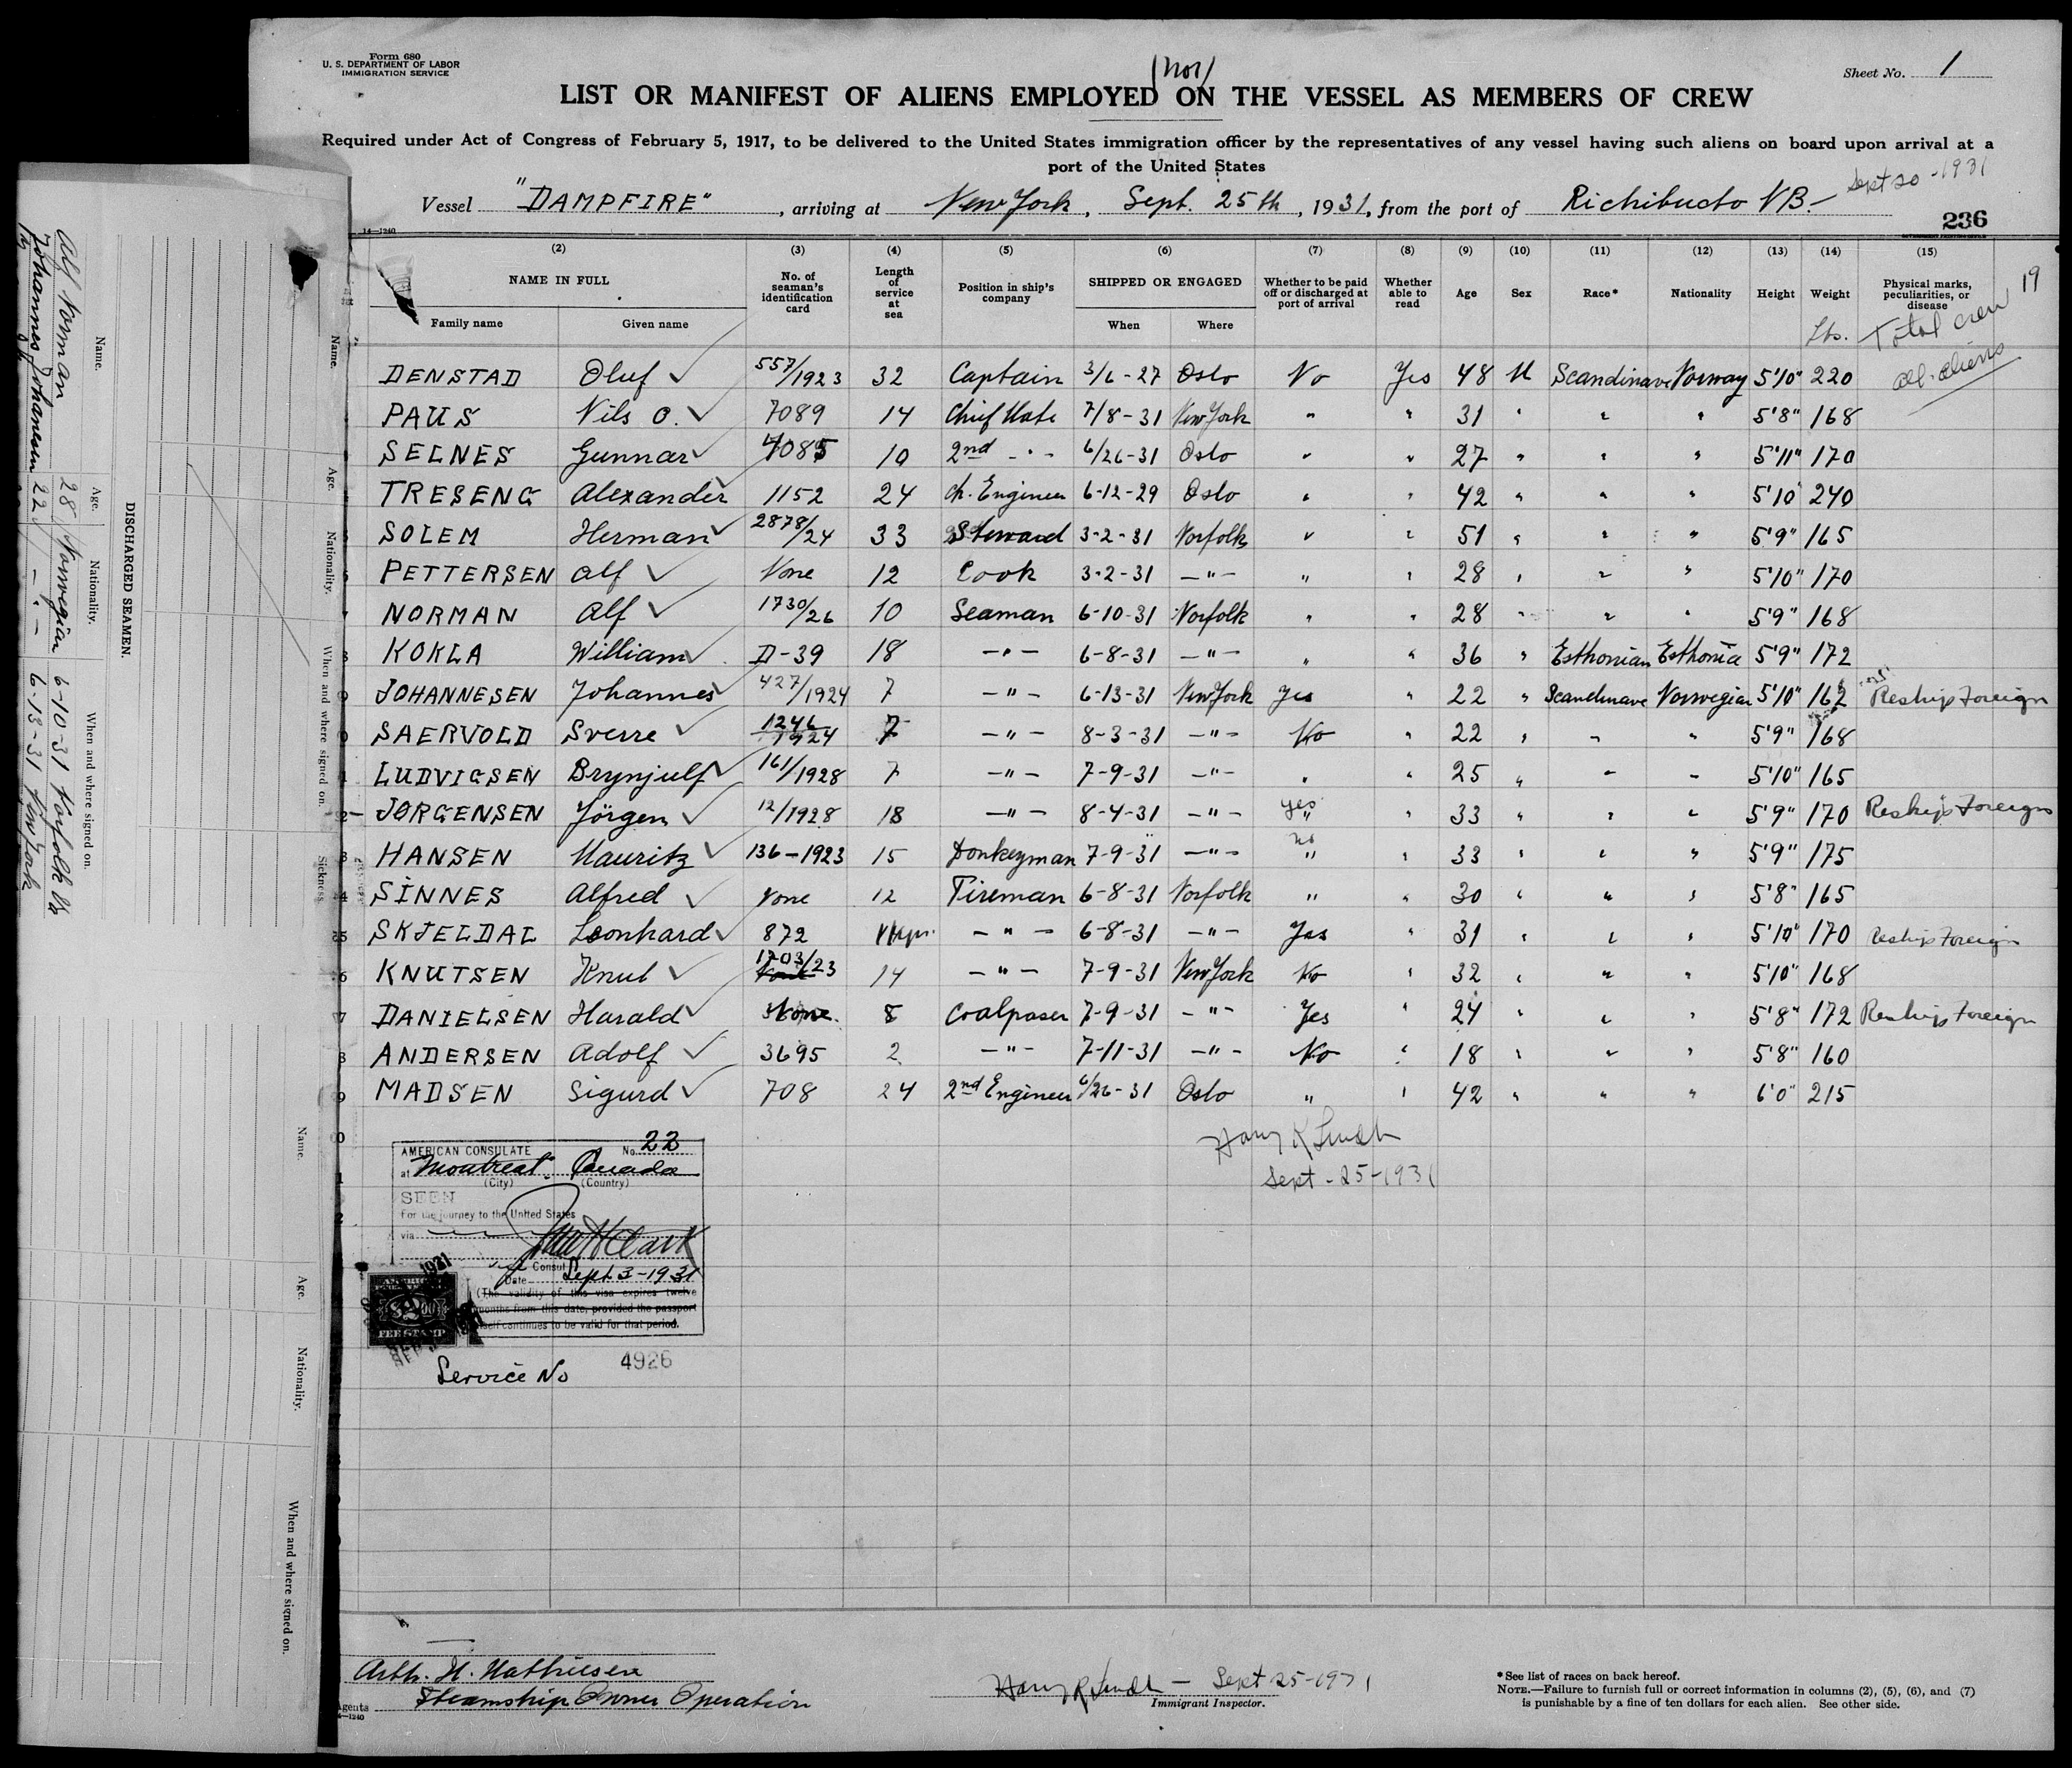 Form 680
U. S. DEPARTMENT OF LABOR
IMMIGRATION SERVICE
(Nor)
Sheet No. 1
LIST OR MANIFEST OF ALIENS EMPLOYED ON THE VESSEL AS MEMBERS OF CREW
Required under Act of Congress of February 5, 1917, to be delivered to the United States immigration officer by the representatives of any vessel having such aliens on board upon arrival at a
port of the United States
Sept 20-1931
Vessel "DAMPFIRE", arriving at New York, Sept. 25th, 1931, from the port of Richibucto NB.
14—1240
236
(2) (3) (4) (5) (6) (7) (8) (9) (10) (11) (12) (13) (14) (15)
NAME IN FULL No. of seaman's identification card Length of service at sea Position in ship's company SHIPPED OR ENGAGED Whether to be paid off or discharged at port of arrival Whether able to read Age Sex Race* Nationality Height Weight Physical marks, peculiarities, or disease
Family name Given name When Where
Lbs. Total crew 19
all aliens
DENSTAD Oluf 557/1923 32 Captain 3/6-27 Oslo No Yes 48 M Scandinave Norway 5'10" 220
PAUS Nils O. 7089 14 Chief Mate 7/8-31 New York " " 31 " " " 5'8" 168
SELNES Gunnar 4085 10 2nd -"- 6/26-31 Oslo " " 27 " " " 5'11" 170
TRESENG Alexander 1152 24 Ch. Engineer 6-12-29 Oslo " " 42 " " " 5'10 240
SOLEM Herman 2878/24 33 Steward 3-2-31 Norfolk " " 51 " " " 5'9" 165
PETTERSEN Alf None 12 Cook 3-2-31 -"- " " 28 " " " 5'10" 170
NORMAN Alf 1730/26 10 Seaman 6-10-31 Norfolk " " 28 " " " 5'9" 168
KOKLA William D-39 18 -"- 6-8-31 -"- " " 36 " Esthonian Esthonia 5'9" 172
JOHANNESEN Johannes 427/1924 7 -"- 6-13-31 New York Yes " 22 " Scandinave Norwegian 5'10" 162 Reship Foreign
SAERVOLD Sverre 1246/1924 7 -"- 8-3-31 -"- No " 22 " " " 5'9" 168
LUDVIGSEN Brynjulf 161/1928 7 -"- 7-9-31 -"- " " 25 " " " 5'10" 165
JORGENSEN Jörgen 12/1928 18 -"- 8-4-31 -"- yes " " 33 " " " 5'9" 170 Reship Foreign
HANSEN Mauritz 136-1923 15 Donkeyman 7-9-31 -"- no " " 33 " " " 5'9" 175
SINNES Alfred None 12 Fireman 6-8-31 Norfolk " " 30 " " " 5'8" 165
SKJELDAL Leonhard 872 -"- 6-8-31 -"- Yes " 31 " " " 5'10" 170 Reship Foreign
KNUTSEN Knut 1703/23 14 -"- 7-9-31 New York No " 32 " " " 5'10" 168
DANIELSEN Harald None. 8 Coalpaser 7-9-31 -"- Yes " 24 " " " 5'8" 172 Reship Foreign
ANDERSEN Adolf 3695 2 -"- 7-11-31 -"- No " 18 " " " 5'8" 160
MADSEN Sigurd 708 24 2nd Engineer 6/26-31 Oslo " " 42 " " " 6'0" 215
Sept-25-1931
AMERICAN CONSULATE No. 22
at Montreal Canada
(City) (Country)
SEEN
For the journey to the United States
via
Consul
Date Sept 3-1931
(The validity of this visa expires twelve
months from this date, provided the passport
itself continues to be valid for that period.
FEE STAMP
Service No 4926
Arth. H. Mathiesen
Agents Steamship Owner Operation
Sept 25-1931
Immigrant Inspector.
*See list of races on back hereof.
NOTE.—Failure to furnish full or correct information in columns (2), (5), (6), and (7)
is punishable by a fine of ten dollars for each alien. See other side.
DISCHARGED SEAMEN.
Name. Age. Nationality. When and where signed on.
Alf Norman 28 Norwegian 6-10-31 Norfolk Va
Johannes Johannesen 22 -"- 6-13-31 New York
Name. Age. Nationality. When and where signed on. Sickness.
Name. Age. Nationality. When and where signed on.